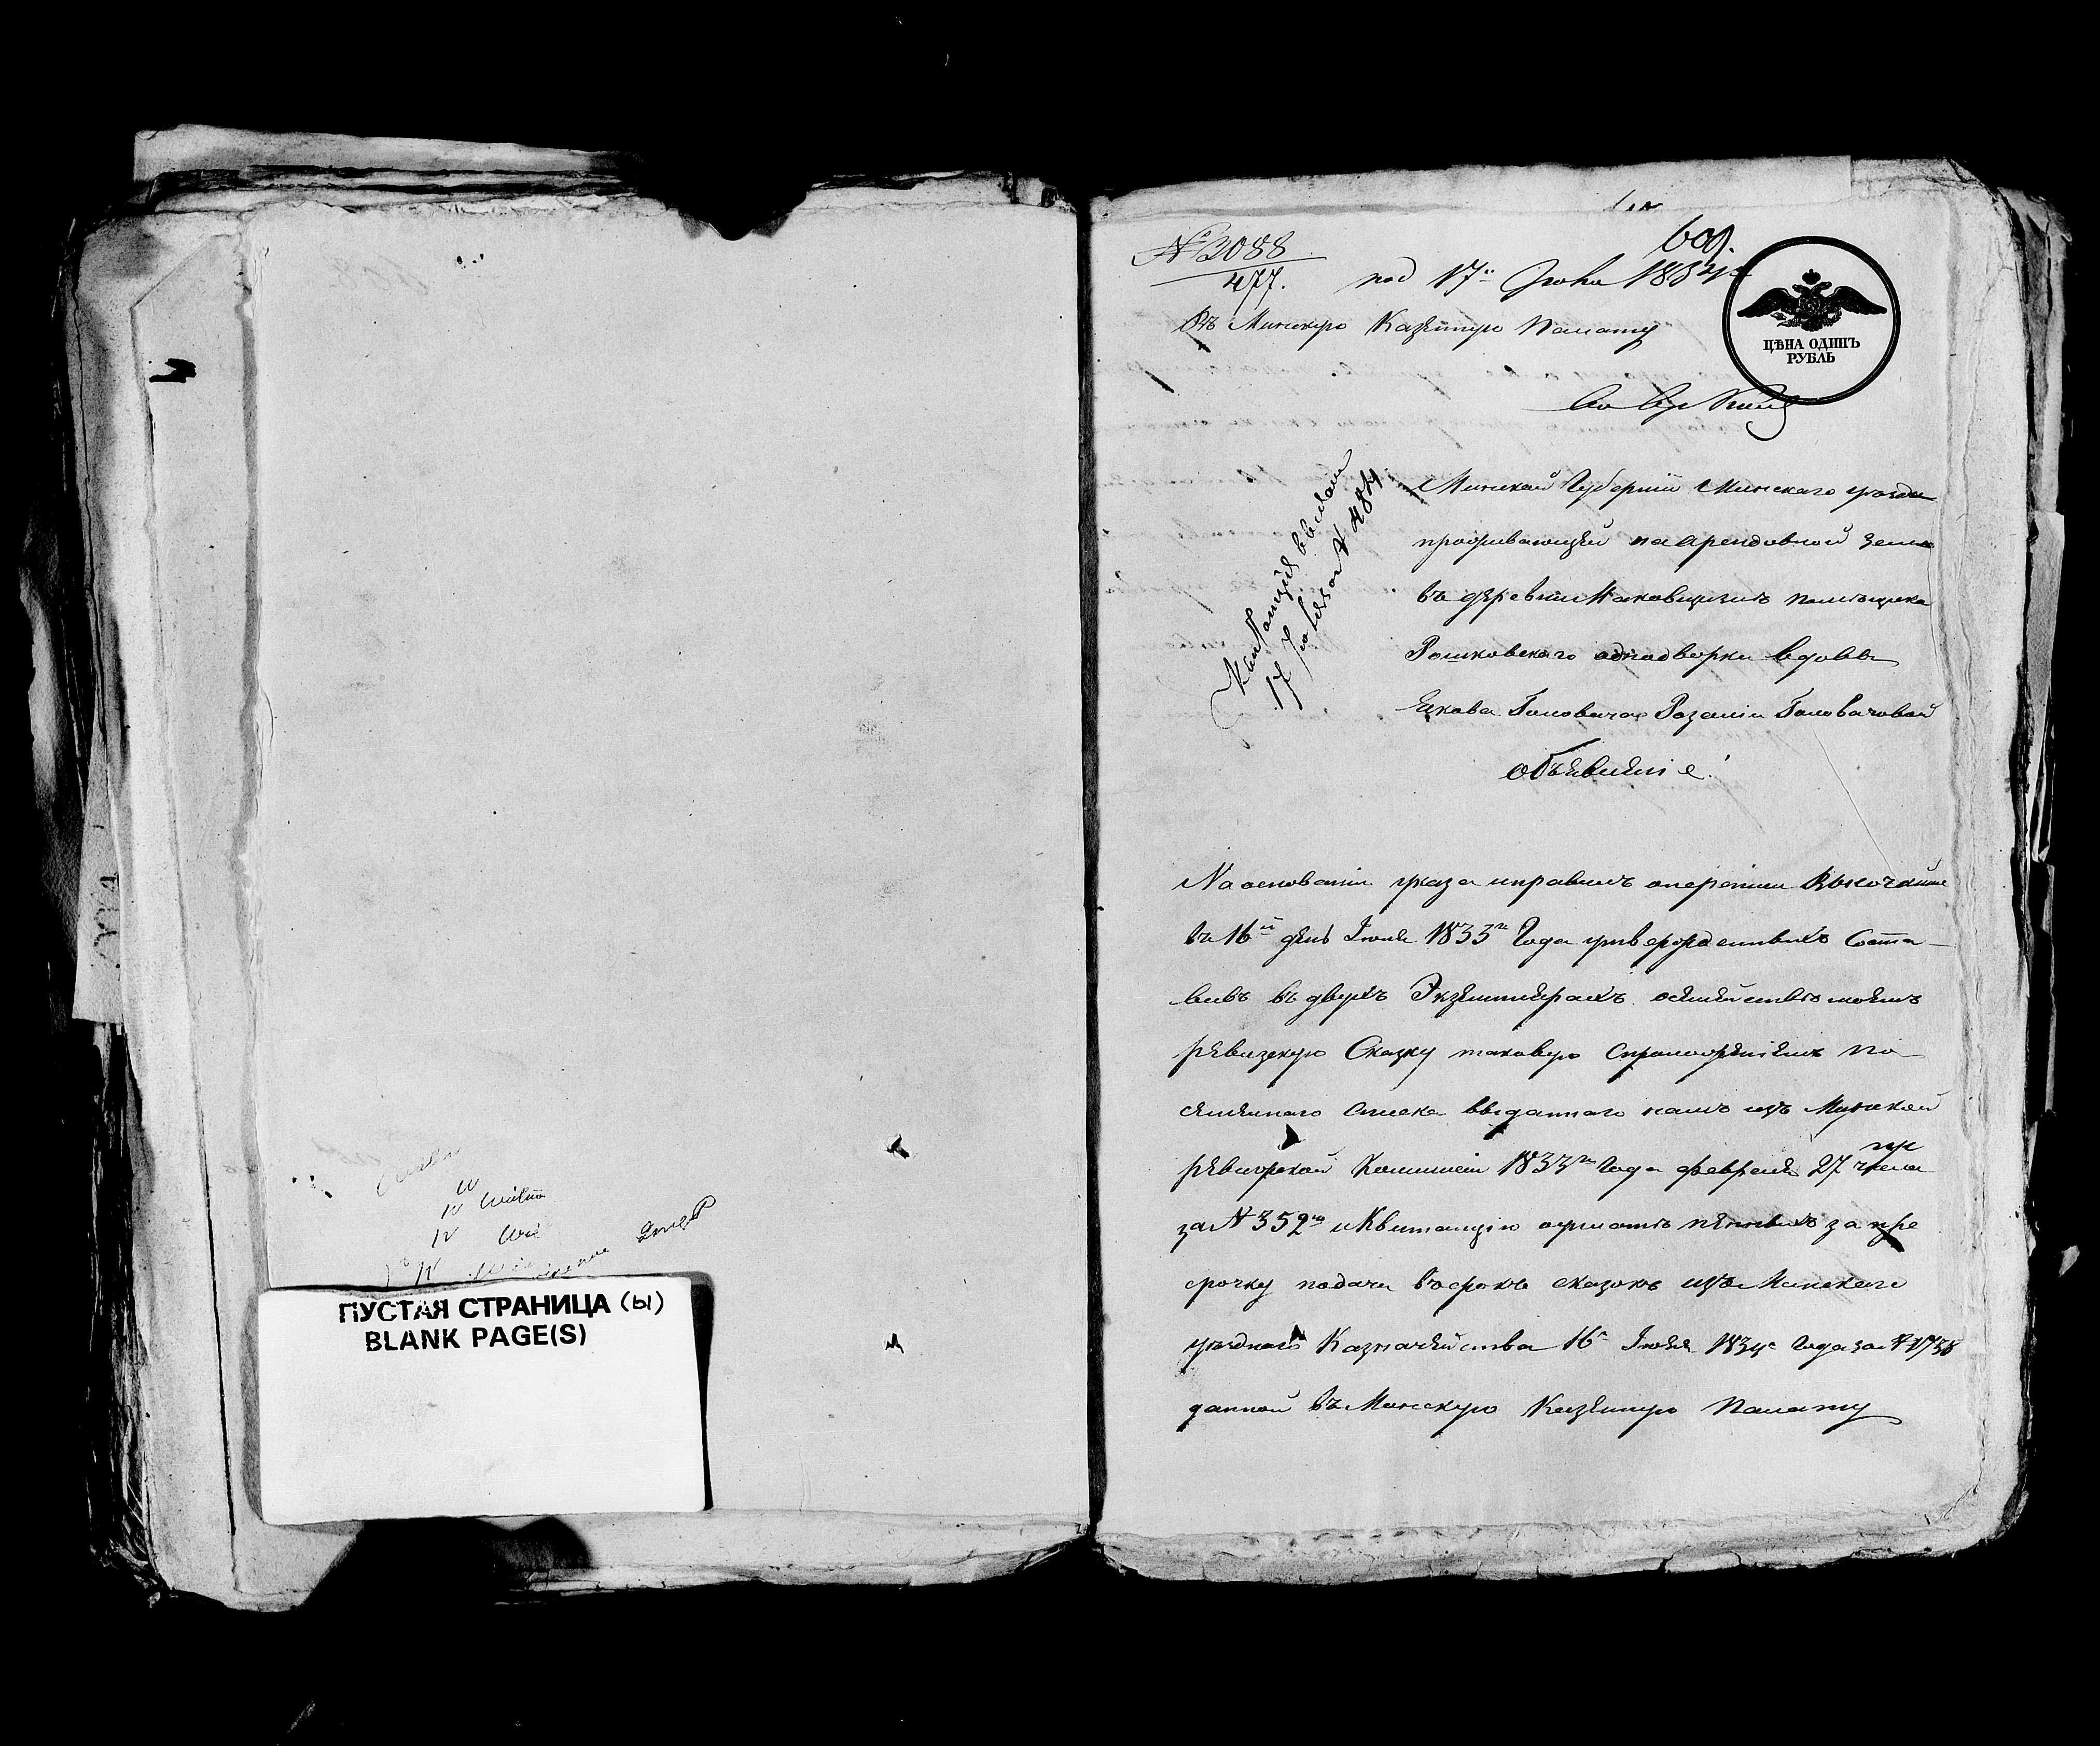 ПУСТАЯ СТРАНИЦА (ы)
BLANK PAGE(S)
609.
№ 3088
477.
под 17го Июня 1834го
ЦѢНА ОДИНЪ
РУБЛЬ
Въ Минскую Казенную Палату
Квитанція выдана
17 Іюня за № 484
Минской Губерніи Минскаго уезда
проживающей на арендовной земле
въ деревни помѣщика
Рошковскаго однодворки вдовы
Якова Головача Розаліи Головачовой
объявленіе.
На основаніи указа и правилъ о неревіи Высочайше
въ 16й день Іюня 1833го Года утвержденныхъ Соста-
вивъ въ двухъ Экземплярахъ о семействѣ моемъ
ревизскую Сказку таковую с приложеніемъ по
семейнаго списка выданнаго намъ изъ Минской
ревизской Комиссіи 1833го Года февраля 27 числа
за № 352м и Квитанцію о уплатѣ пенныхъ за пре
срочку подачи въ срокъ сказокъ изъ Минскаго
уѣзднаго Казначейства 16го Іюня 1834е Года за № 1738
данной въ Минскую Казенную Палату